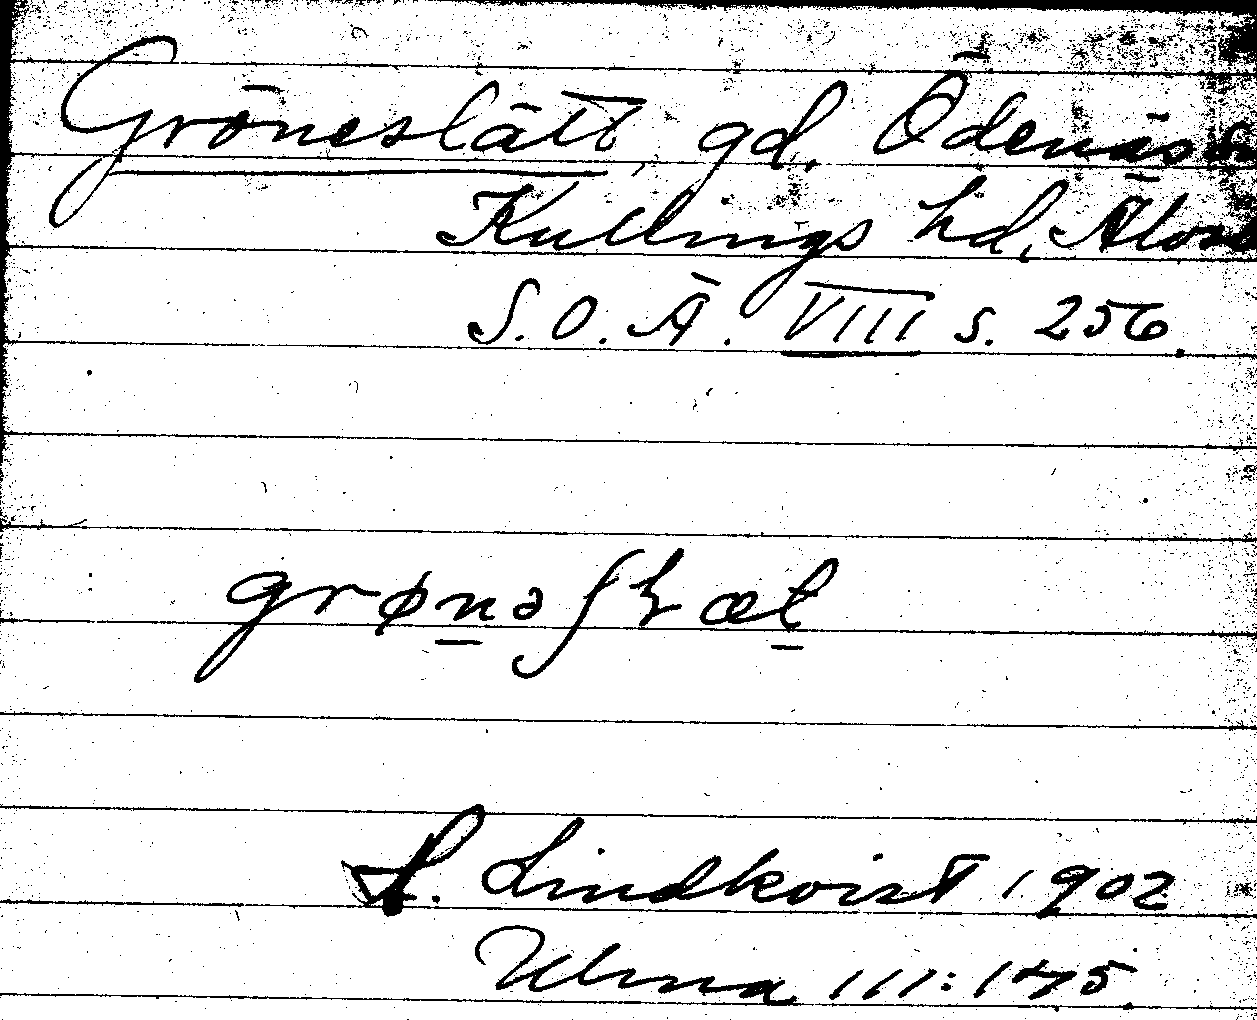 Gröneslätt, gd. Ödenäs sn
Kullings hd, Älvsb
S.O.Ä. VIII s. 256.
grønəʃḷæt
Lindkvist 1902
Ulma 111:145.